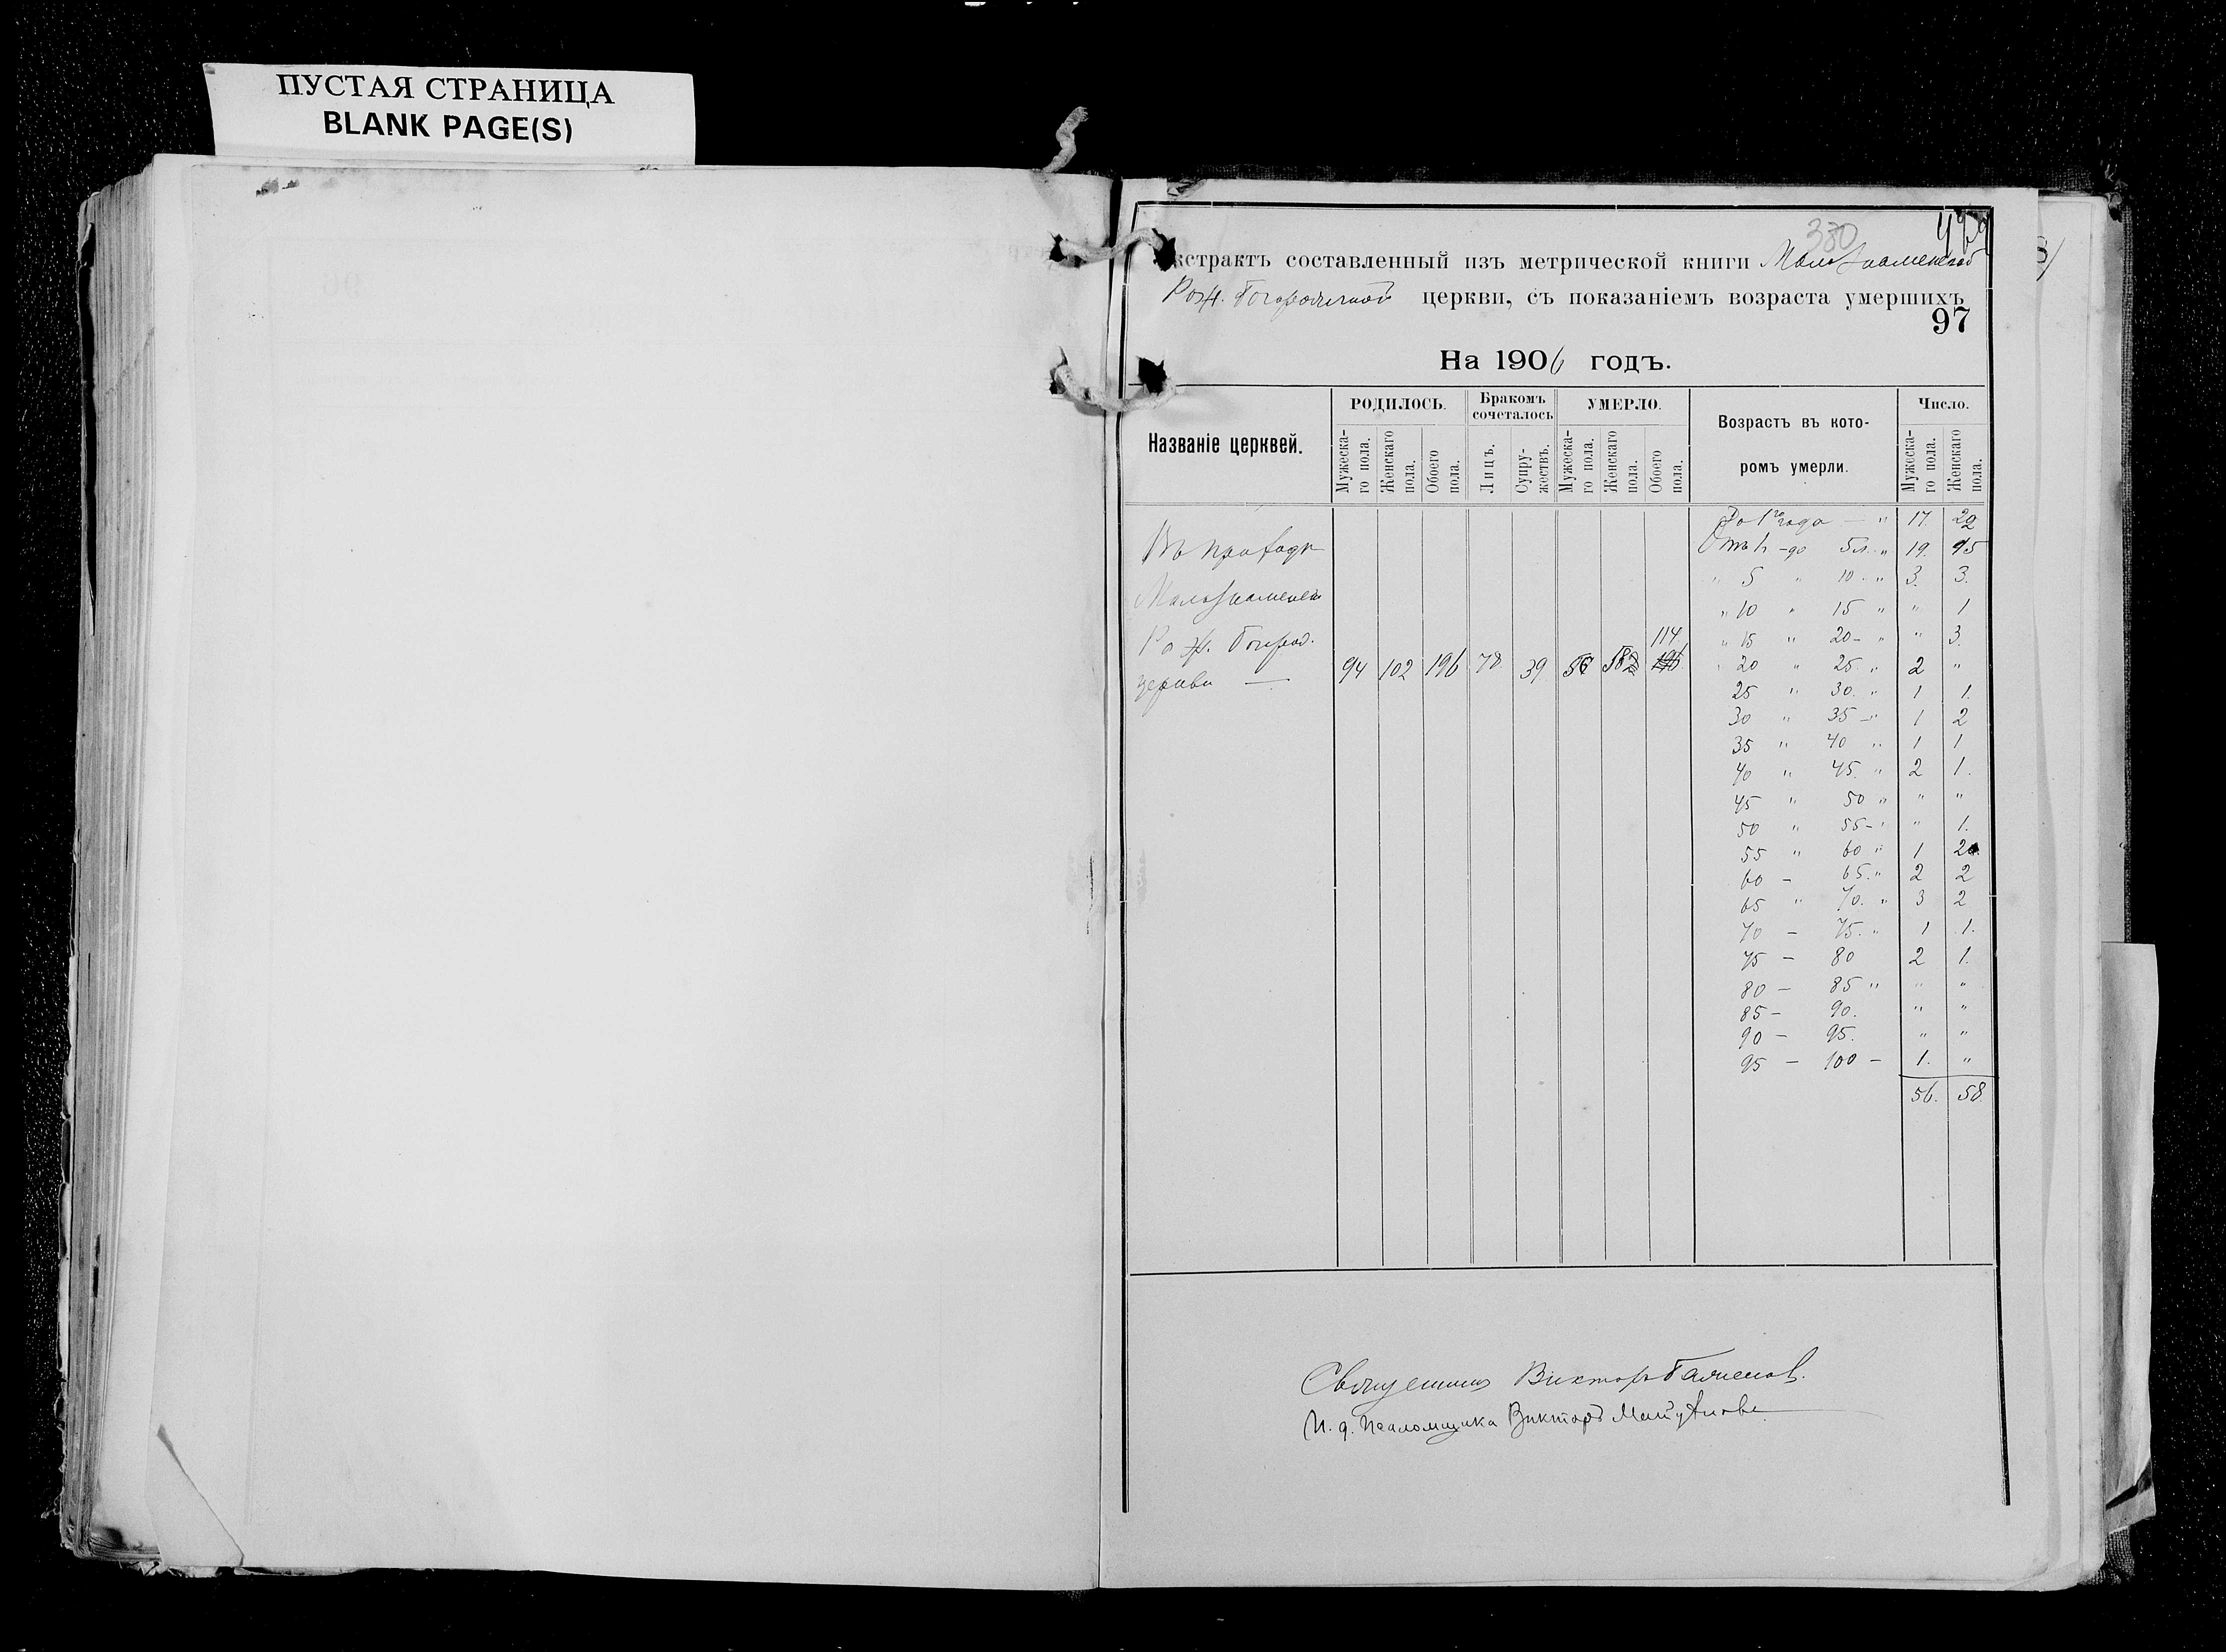 ПУСТАЯ СТРАНИЦА
BLANK PAGE(S)
380
кстрактъ составленный изъ метрической книги Малознаменской
Рож. Богородичной церкви, съ показаніемъ возраста умершихъ
97
На 1906 годъ.
Названіе церквей.
РОДИЛОСЬ.
Бракомъ сочеталось
УМЕРЛО.
Возрастъ въ кото-
ромъ умерли.
Число.
Мужеска-го пола. Женскаго пола. Обоего пола. Лицъ. Супру-жествъ. Мужеска-го пола. Женскаго пола. Обоего пола. Мужеска-го пола. Женскаго пола.
Въ приходѣ
Малознаменск
Рож. Богород.
церкви — 94 102 196 78 39 56 58 114.
До 1го года — " 17. 22
Отъ 1 - до 5 л. " 19. 15
" 5 " 10 " 3. 3.
" 10 " 15 " " 1
" 15 " 20 - " " 3.
" 20 " 25 " 2 "
25 " 30. " 1 1.
30 " 35 - " 1 2
35 " 40 " 1 1
40 " 45. " 2 1.
45 " 50 " " "
50 " 55 - " " 1.
55 " 60 " 1 2
60 - 65. " 2 2
65 " 70. " 3 2
70 - 75. " 1 1.
75 - 80 2 1.
80 - 85 " " "
85 - 90. " "
90 - 95. " "
95 - 100 - 1. "
56. 58.
Священникъ Викторъ
И. д. Псаломщика Викторъ